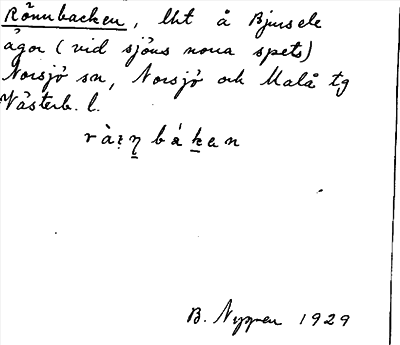 Rönnbacken, lht å Bjursele
ägor (vid sjöns norra spets)
Norsjö sn, Norsjö och Malå tg
Västerb. l.
B. Nyman 1929